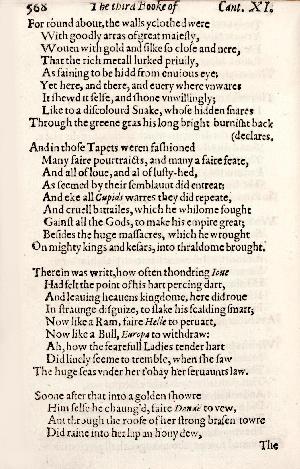 568 The third Booke of Cant. XI.
For round about, the walls yclothed were
With goodly arras of great maiesty,
Wouen with gold and silke so close and nere,
That the rich metall lurked priuily,
As faining to be hidd from enuious eye;
Yet here, and there, and euery where vnwares
It shewd it selfe, and shone vnwillingly;
Like to a discolourd Snake, whose hidden snares
Through the greene gras his long bright burnisht back
(declares.
And in those Tapets weren fashioned
Many faire pourtraicts, and many a faire feate,
And all of loue, and al of lusty-hed,
As seemed by their semblaunt did entreat;
And eke all Cupids warres they did repeate,
And cruell battailes, which he whilome fought
Gainst all the Gods, to make his empire great;
Besides the huge massacres, which he wrought
On mighty kings and kesars, into thraldome brought.
Therein was writt, how often thondring Ioue
Had felt the point of his hart percing dart,
And leauing heauens kingdome, here did roue
In straunge disguize, to slake his scalding smart;
Now like a Ram, faire Helle to peruart,
Now like a Bull, Europa to withdraw:
Ah, how the fearefull Ladies tender hart
Did liuely seeme to tremble, when she saw
The huge seas vnder her t'obay her seruaunts law.
Soone after that into a golden showre
Him selfe he chaung'd, faire Danaë to vew,
And through the roofe of her strong brasen towre
Did raine into her lap an hony dew,
The